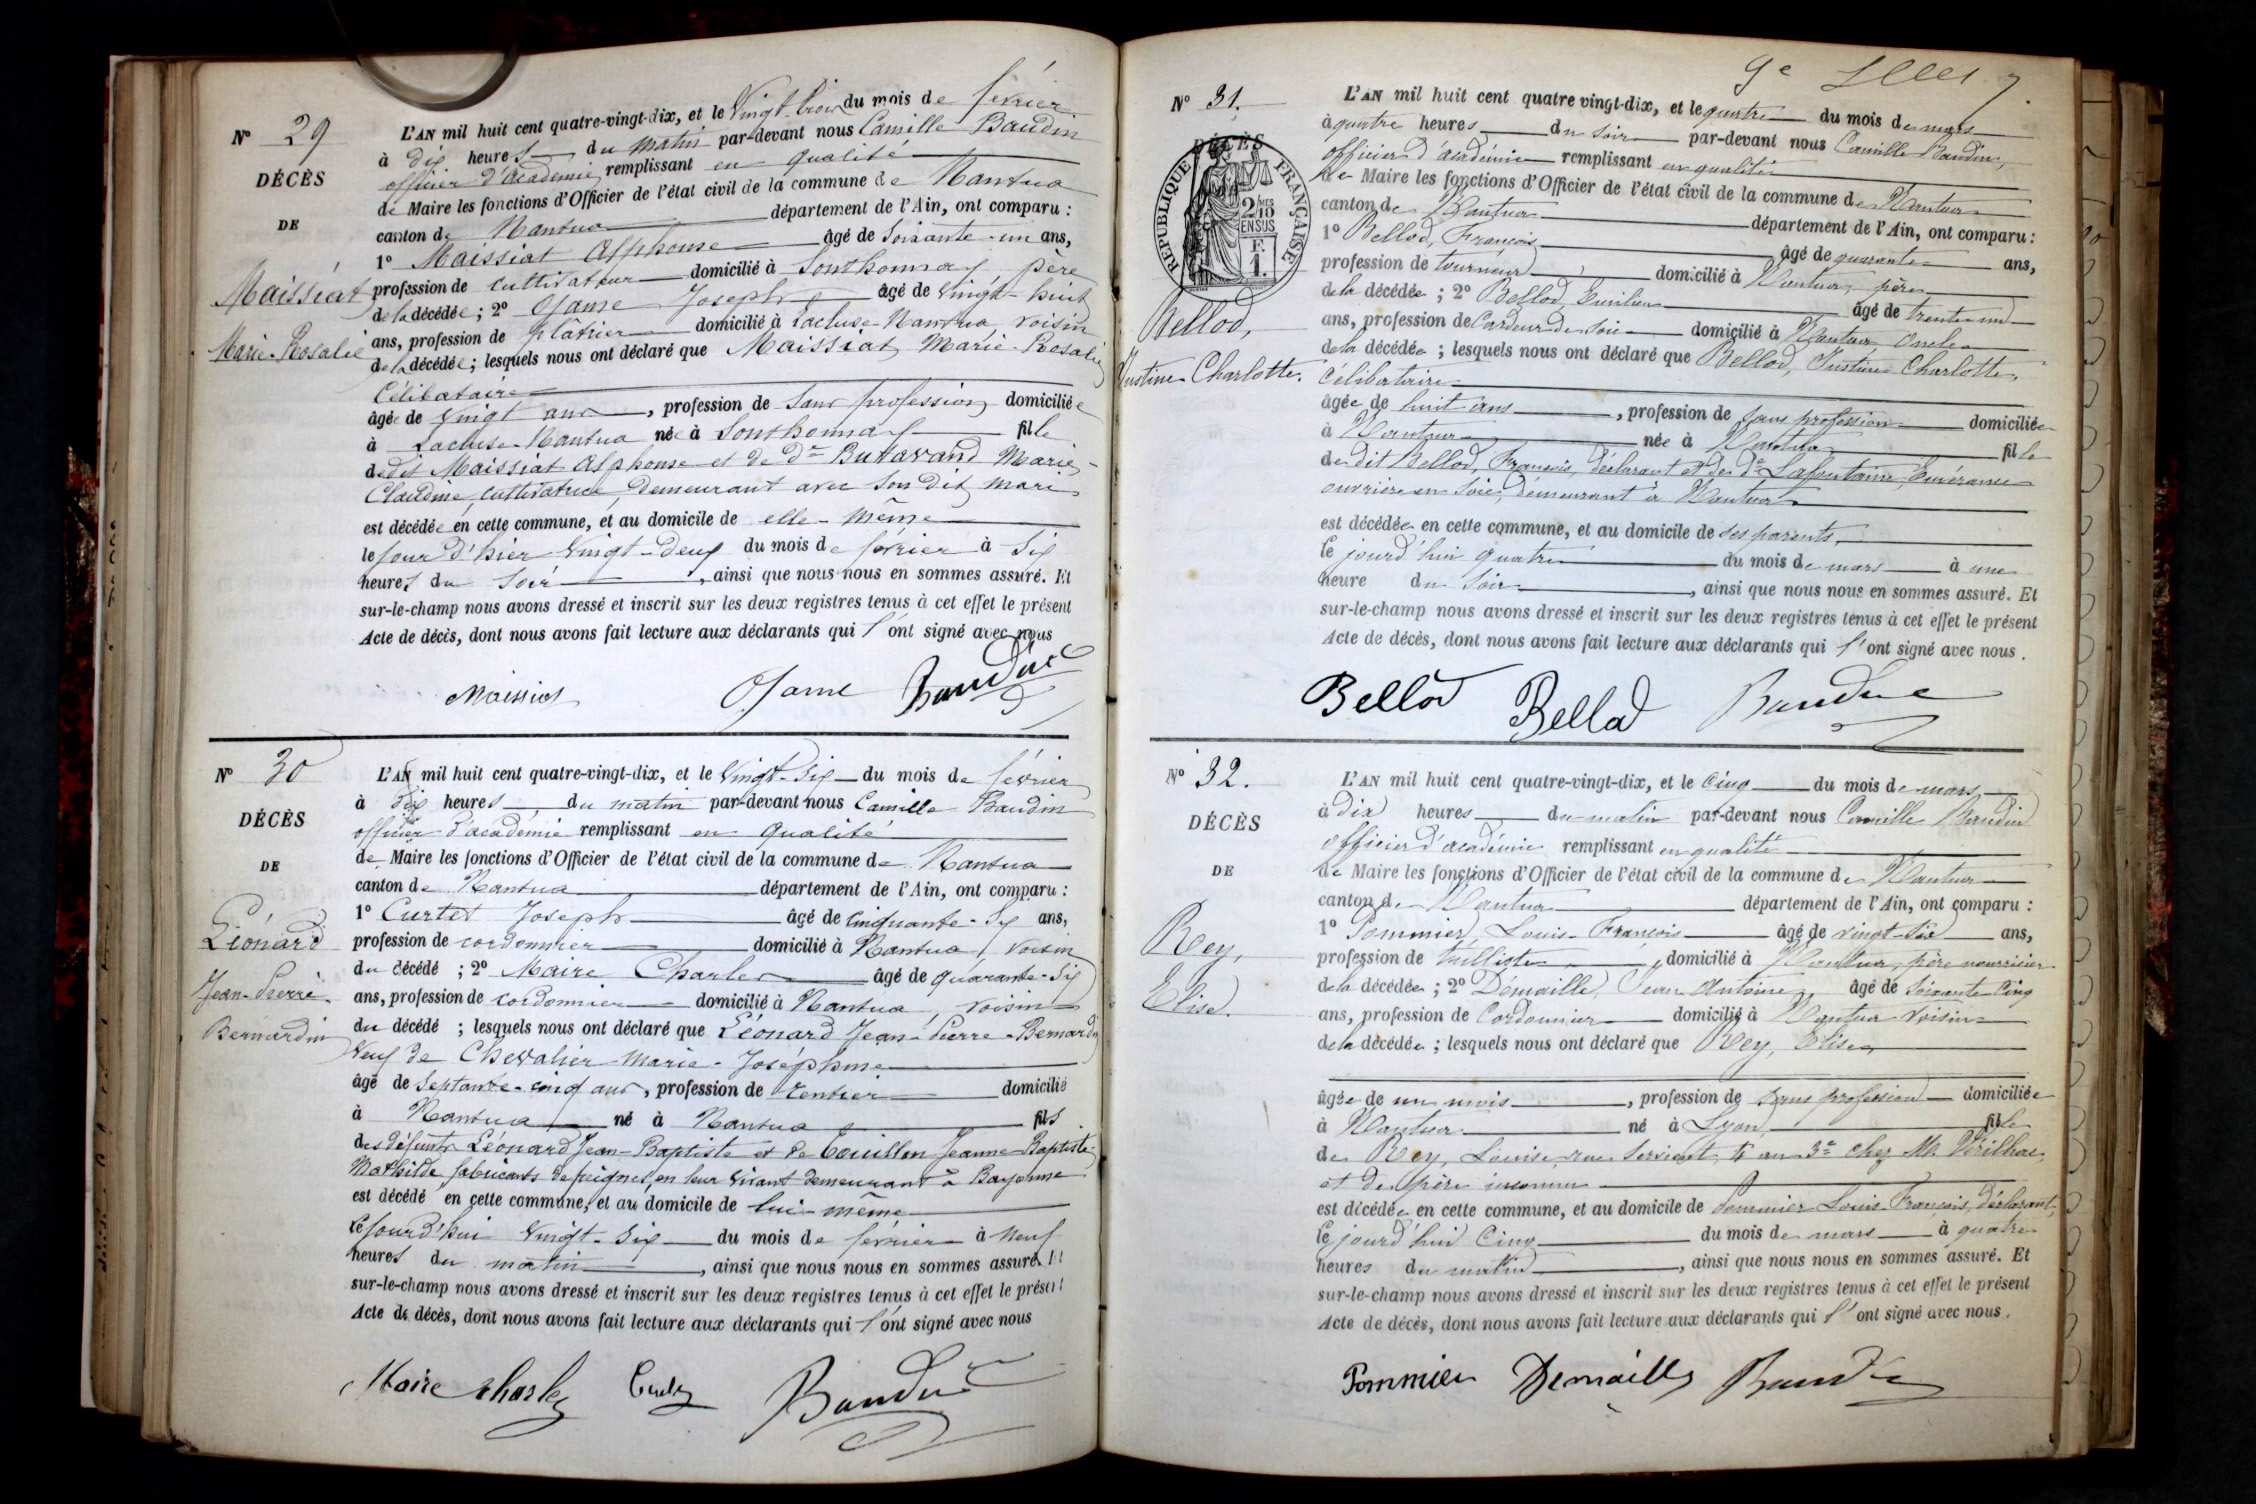 N° 29
DÉCÈS
DE
Maissiat
Marie-Rosalie
L'AN mil huit cent quatre-vingt-dix, et le Vingt-trois du mois de février
à dix heures du matin par-devant nous Camille Baudin
officier d'académie remplissant en qualité
de Maire les fonctions d'Officier de l'état civil de la commune de Nantua
canton de Nantua département de l'Ain, ont comparu :
1° Maissiat Alphonse âgé de Soixante-un ans,
profession de cultivateur domicilié à Sonthonnax, père
de la décédée ; 2° Ojame Joseph âgé de vingt-huit
ans, profession de plâtrier domicilié à Lacluse-Nantua, voisin
de la décédée ; lesquels nous ont déclaré que Maissiat, Marie-Rosalie
Célibataire
âgée de vingt ans, profession de Sans profession, domiciliée
à Lacluse-Nantua née à Sonthonnax fille
dedit Maissiat Alphonse et de De Butavand Marie-
Claudine, cultivatrice, demeurant avec Son dit mari
est décédée en cette commune, et au domicile de elle-même
le jour d'hier Vingt-deux du mois de février à Six
heures du Soir, ainsi que nous nous en sommes assuré. Et
sur-le-champ nous avons dressé et inscrit sur les deux registres tenus à cet effet le présent
Acte de décès, dont nous avons fait lecture aux déclarants qui l'ont signé avec nous
Maissiat Ojame Baudin
N° 30
DÉCÈS
DE
Léonard
Jean-Pierre-
Bernardin
L'AN mil huit cent quatre-vingt-dix, et le Vingt-Six du mois de février
à dix heures du matin par-devant nous Camille Baudin
officier d'académie remplissant en qualité
de Maire les fonctions d'Officier de l'état civil de la commune de Nantua
canton de Nantua département de l'Ain, ont comparu :
1° Curtet Joseph âgé de Cinquante-Six ans,
profession de cordonnier domicilié à Nantua, voisin
du décédé ; 2° Maire Charles âgé de quarante-Six
ans, profession de cordonnier domicilié à Nantua, voisin
du décédé ; lesquels nous ont déclaré que Léonard Jean-Pierre-Bernardin
Veuf de Chevalier Marie-Joséphine
âgé de Septante-cinq ans, profession de rentier domicilié
à Nantua né à Nantua fils
des défunts Léonard Jean-Baptiste et de Jeanne-Baptiste
Mathilde, fabricants de peignes, en leur vivant demeurant à Bayonne
est décédé en cette commune, et au domicile de lui-même
le jourd'hui Vingt-Six du mois de février à Neuf
heures du matin, ainsi que nous nous en sommes assuré. Et
sur-le-champ nous avons dressé et inscrit sur les deux registres tenus à cet effet le présent
Acte de décès, dont nous avons fait lecture aux déclarants qui l'ont signé avec nous
Maire Charles Baudin
9e
N° 31.
DÉCÈS
RÉPUBLIQUE FRANÇAISE
2/10 MES
EN SUS
F.
1.
Bellod,
Justine-Charlotte.
L'AN mil huit cent quatre vingt-dix, et le quatre du mois de mars
à quatre heures du soir par-devant nous Camille Baudin,
officier d'académie remplissant en qualité
de Maire les fonctions d'Officier de l'état civil de la commune de Nantua
canton de Nantua département de l'Ain, ont comparu :
1° Bellod, François âgé de quarante ans,
profession de tourneur domicilié à Nantua, père
de la décédée ; 2° Bellod, Emilien âgé de trente-un
ans, profession de Cardeur de Soie domicilié à Nantua oncle
de la décédée ; lesquels nous ont déclaré que Bellod, Justine Charlotte,
Célibataire
âgée de huit ans, profession de sans profession domiciliée
à Nantua née à Nantua fille
de dit Bellod, François, déclarant et de De Lafontaine, Emérance
ouvrière en Soie, demeurant à Nantua
est décédée en cette commune, et au domicile de ses parents,
le jourd'hui quatre du mois de mars à une
heure du Soir, ainsi que nous nous en sommes assuré. Et
sur-le-champ nous avons dressé et inscrit sur les deux registres tenus à cet effet le présent
Acte de décès, dont nous avons fait lecture aux déclarants qui l'ont signé avec nous.
Bellod Bellod Baudin
N° 32.
DÉCÈS
DE
Rey,
Elise.
L'AN mil huit cent quatre-vingt-dix, et le Cinq du mois de mars
à dix heures du matin par-devant nous Camille Baudin
officier d'académie remplissant en qualité
de Maire les fonctions d'Officier de l'état civil de la commune de Nantua
canton de Nantua département de l'Ain, ont comparu :
1° Pommier, Louis-François âgé de vingt-six ans,
profession de tulliste, domicilié à Nantua, père nourricier
de la décédée ; 2° Démaille, Jean Antoine, âgé de Soixante-Cinq
ans, profession de Cordonnier domicilié à Nantua Voisin
de la décédée ; lesquels nous ont déclaré que Rey, Elise
âgée de un mois, profession de Sans profession domiciliée
à Nantua né à Lyon fille
de Rey, Louise, rue Servient, 4 au 3e chez Mr
et de père inconnu
est décédée en cette commune, et au domicile de Pommier Louis-François, déclarant,
le jourd'hui Cinq du mois de mars à quatre
heures du matin, ainsi que nous nous en sommes assuré. Et
sur-le-champ nous avons dressé et inscrit sur les deux registres tenus à cet effet le présent
Acte de décès, dont nous avons fait lecture aux déclarants qui l'ont signé avec nous.
Pommier Demaille Baudin